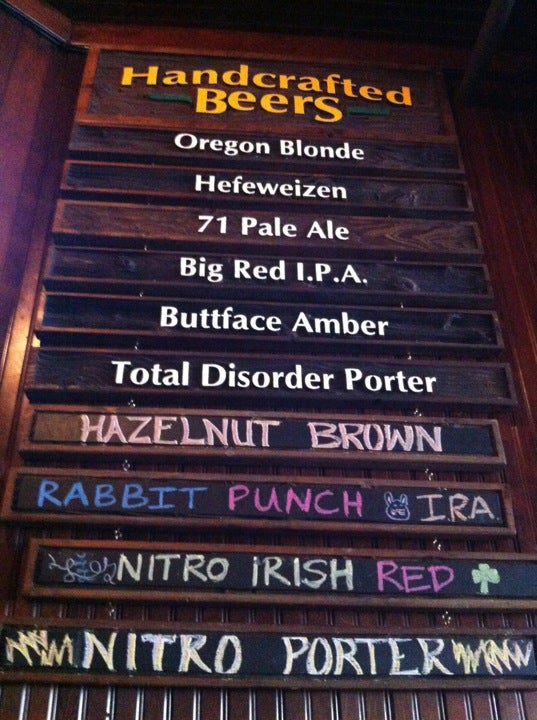 Handcrafted
Beers
Oregon Blonde
Hefeweizen
71 Pale Ale
Big Red I.P.A.
Buttface Amber
Total Disorder Porter
HAZELNUT BROWN
RABBIT PUNCH IRA
NITRO iRISH RED
NITRO PORTER